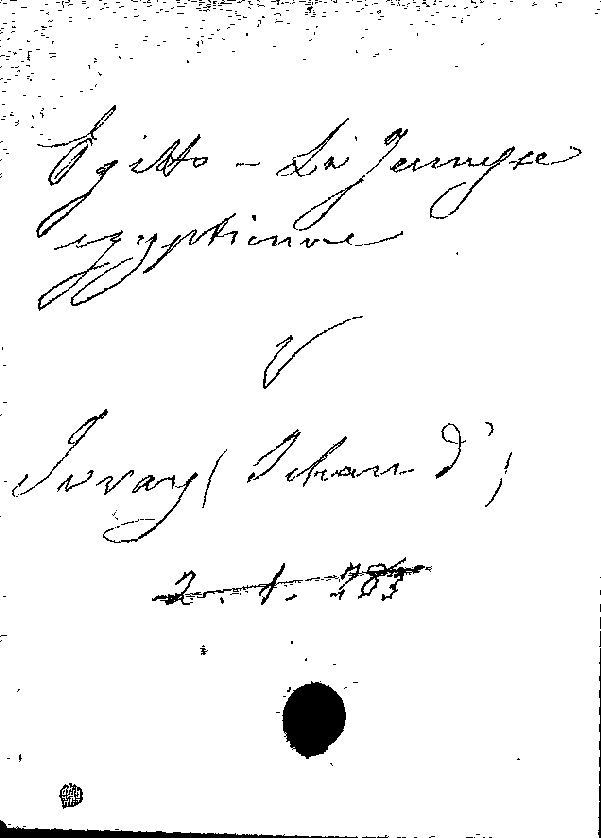 Egitto - La Jeunesse
egyptienne
V
Ivray (Jehan d')
2. 1. 283